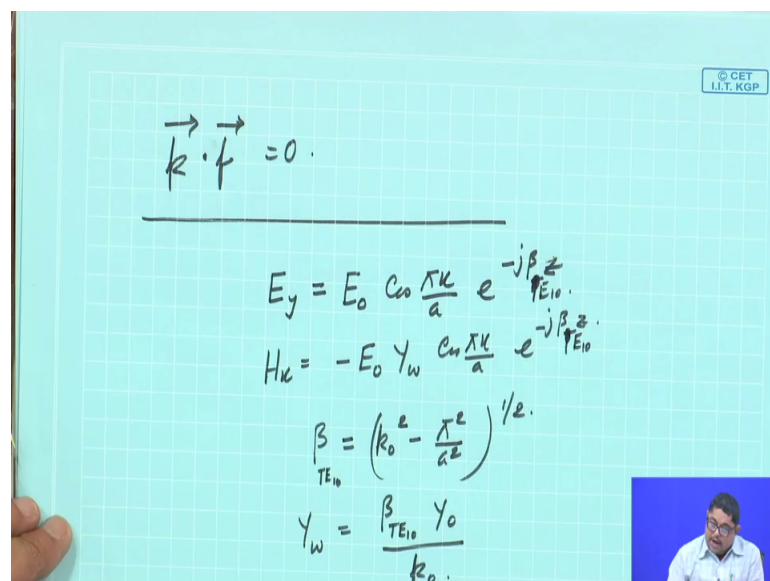 © CET
I.I.T. KGP
\vec{k} \cdot \vec{f} = 0.
E_y = E_0 Cos \frac{πx}{a} e^{-jβ_{TE_{10}} z}.
H_x = - E_0 Y_w Cos \frac{πx}{a} e^{-jβ_{TE_{10}} z}.
β_{TE_{10}} = (k_0^2 - \frac{π^2}{a^2})^{1/2}.
Y_w = \frac{β_{TE_{10}} Y_0}{k_0}.